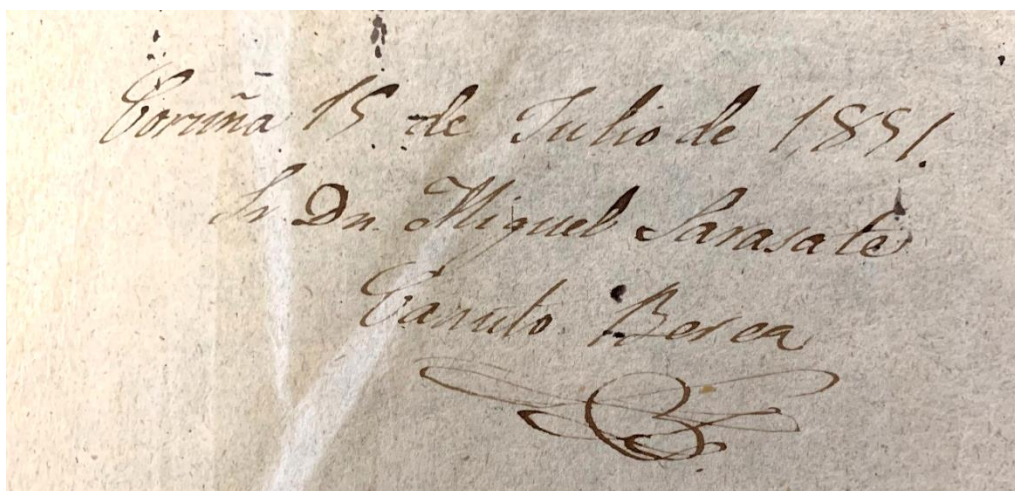 Coruña 15 de Julio de 1851.
Sr Dn. Miguel Sarasate
Canuto Berea